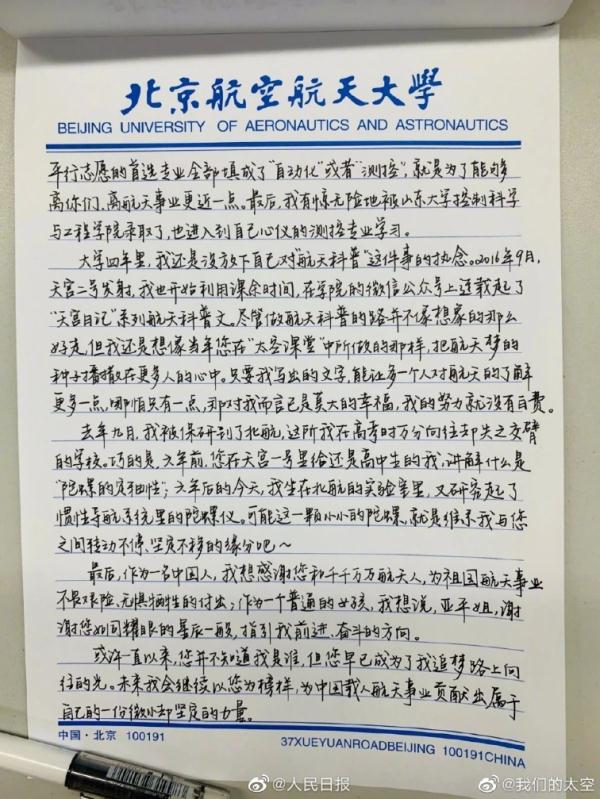 北京航空航天大學
BEIJING UNIVERSITY OF AERONAUTICS AND ASTRONAUTICS
平行志愿的首选专业全部填成了“自动化”或者“测控”,就是为了能够
离你们、离航天事业更近一点。最后,我有惊无险地被山东大学控制科学
与工程学院录取了,也进入到自己心仪的测控专业学习。
大学四年里,我还是没放下自己对“航天科普”这件事的执念。2016年9月,
天宫二号发射,我也开始利用课余时间,在学院的微信公众号上连载起了
“天宫日记”系列航天科普文。尽管做航天科普的路并不像想象的那么
好走,但我还是想像当年您在“太空课堂”中所做的那样,把航天梦的
种子播撒在更多人的心中。只要我写出的文字,能让多一个人对航天的了解
更多一点,哪怕只有一点,那对我而言已是莫大的幸福,我的努力就没有白费。
去年九月,我被保研到了北航,这所我在高考时万分向往却失之交臂
的学校。巧的是,六年前,您在天宫一号里给还是高中生的我,讲解什么是
“陀螺的定轴性”;六年后的今天,我坐在北航的实验室里,又研究起了
惯性导航系统里的陀螺仪。可能这一颗小小的陀螺,就是维系我与您
之间转动不停、坚定不移的缘分吧~
最后,作为一名中国人,我想感谢您和千千万万航天人,为祖国航天事业
不畏艰险、无惧牺牲的付出;作为一个普通的女孩,我想说,亚平姐,谢
谢您如同耀眼的星辰一般,指引我前进、奋斗的方向。
或许一直以来,您并不知道我是谁,但您早已成为了我追梦路上向
往的光。未来我会继续以您为榜样,为中国载人航天事业贡献出属于
自己的一份微小却坚定的力量。
中国·北京 100191
37XUEYUANROADBEIJING 100191CHINA
@人民日报
@我们的太空